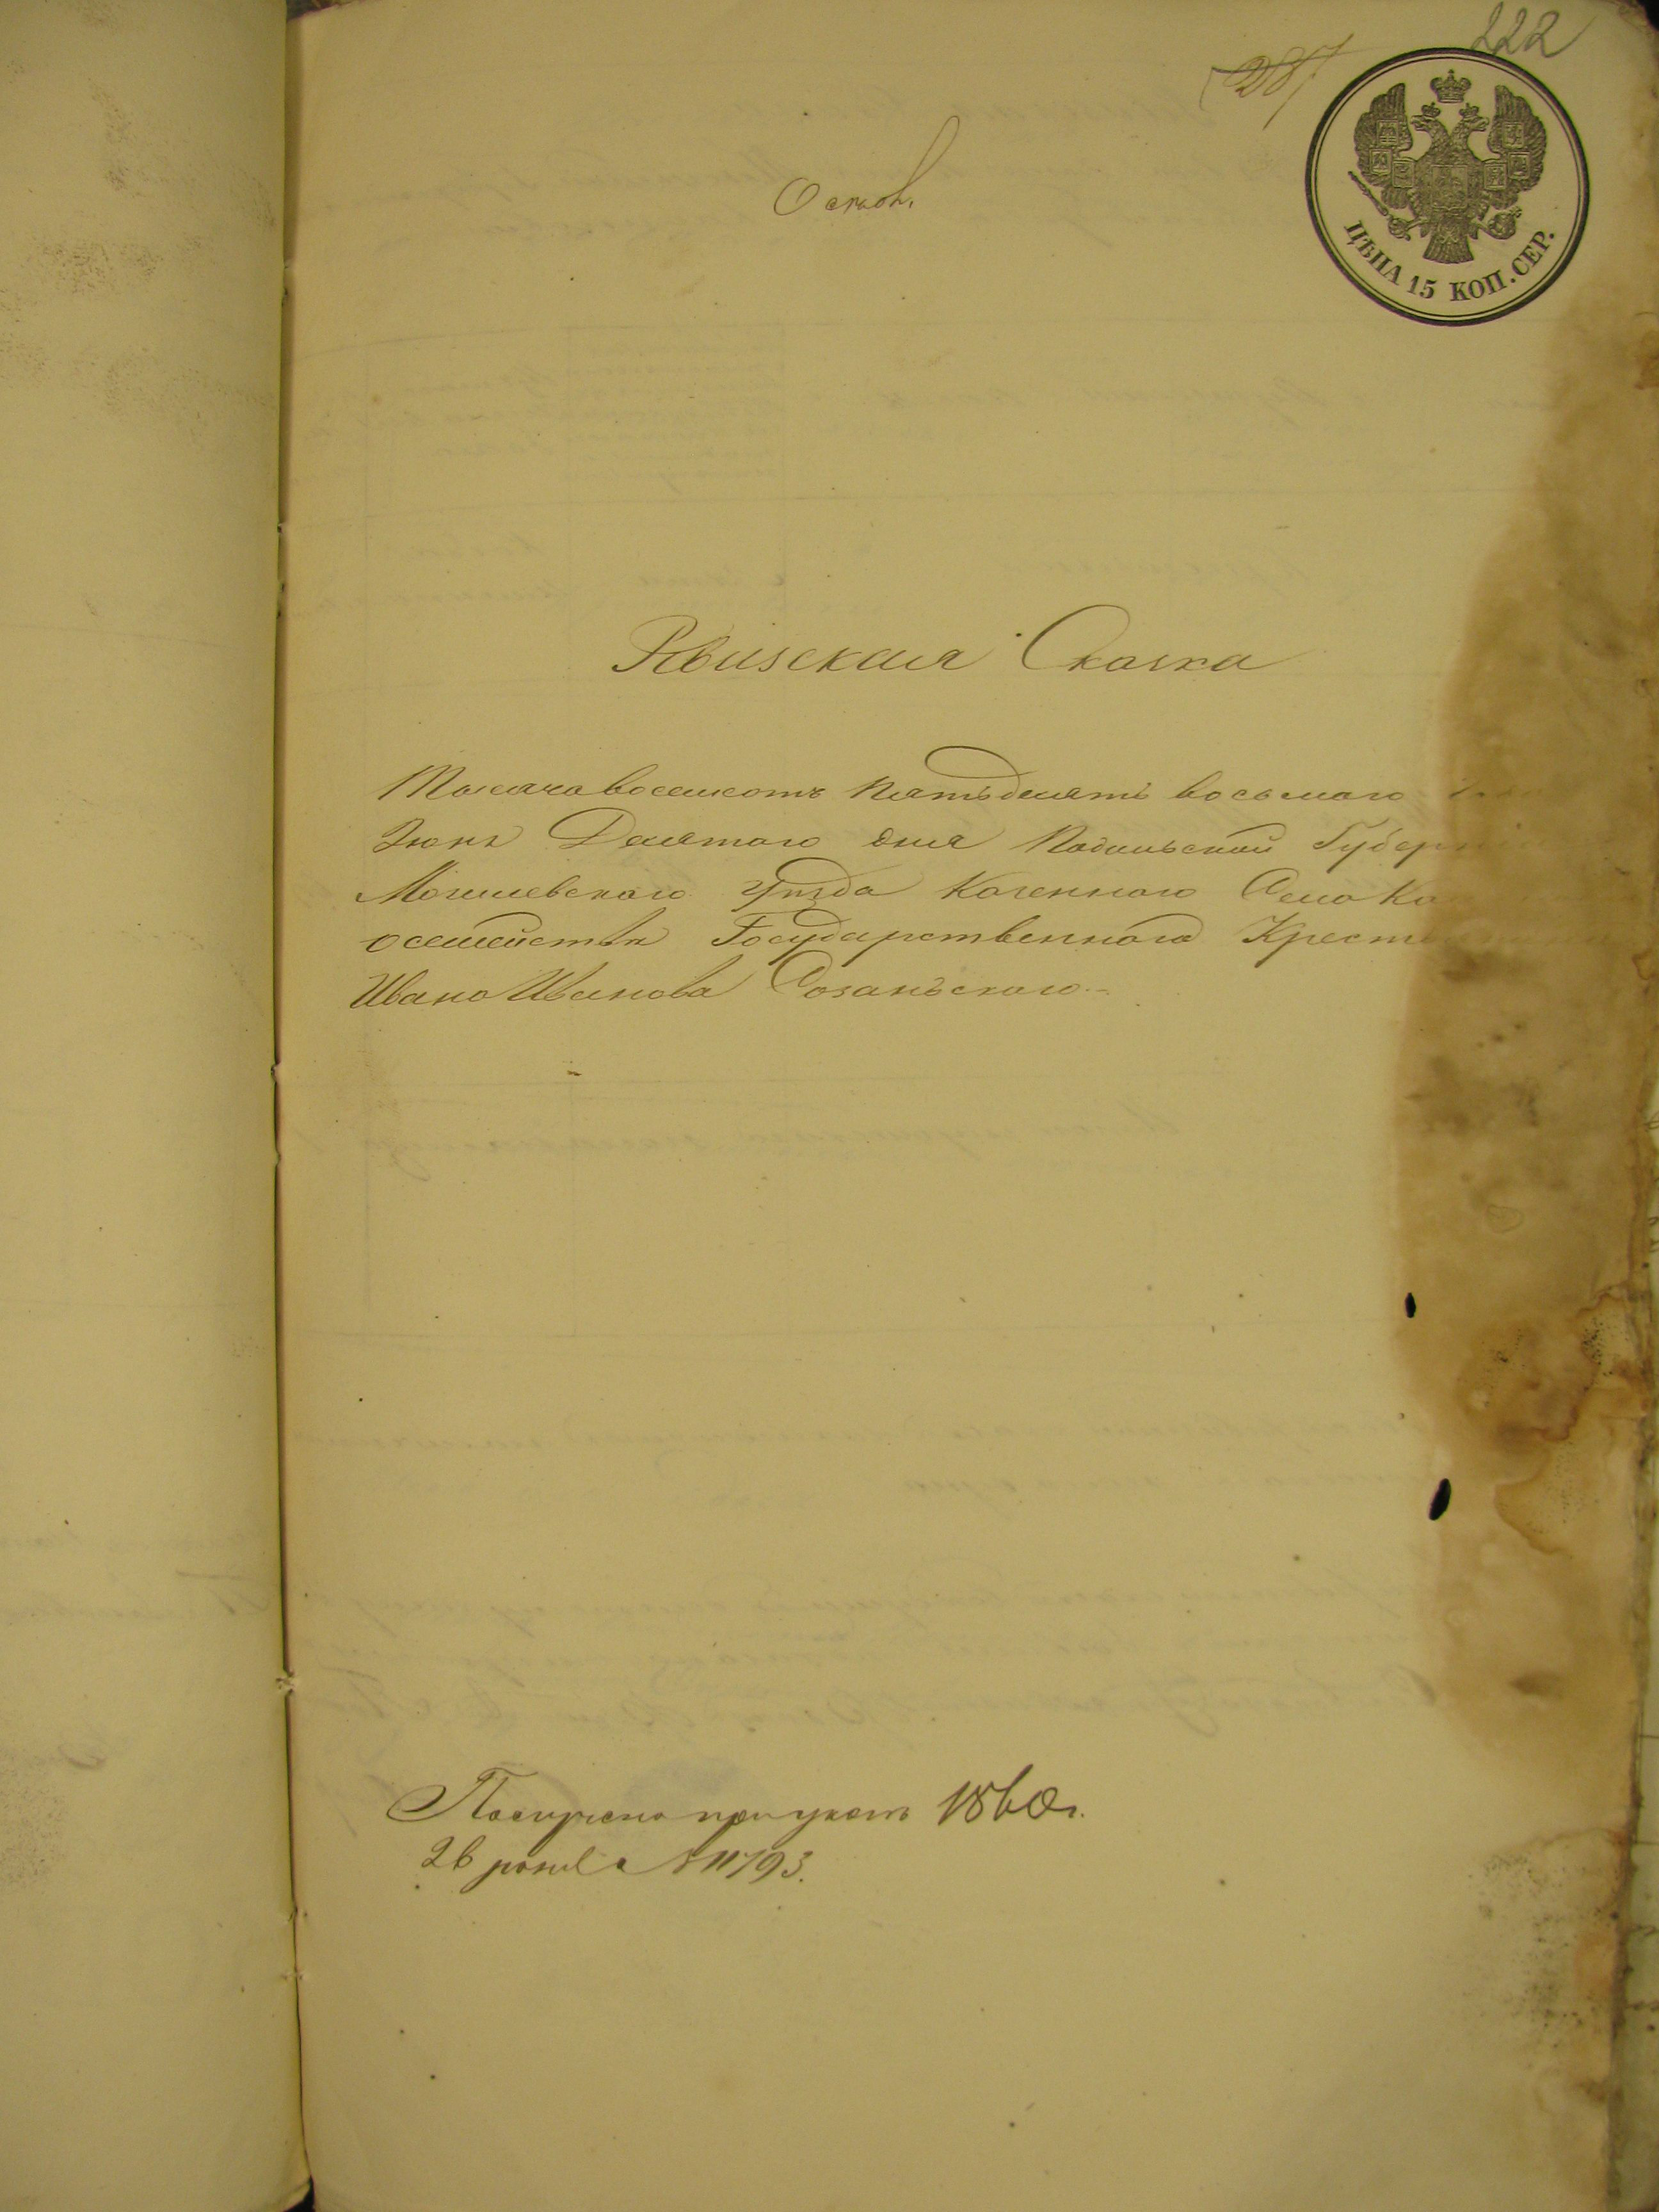 222
287
ЦѢНА 15 КОП. СЕР.
Основ.
Рвизская Сказка
Тысяча восемсотъ Пятьдесятъ восьмаго
Іюня Десятаго дня Подольской Губерн
Могилевскаго Уѣзда Казеннаго Села Ко
осемействѣ Государственнаго Крест
Ивана Иванова Созанъскаго
Получено при указѣ 1860 г.
№ 11793.